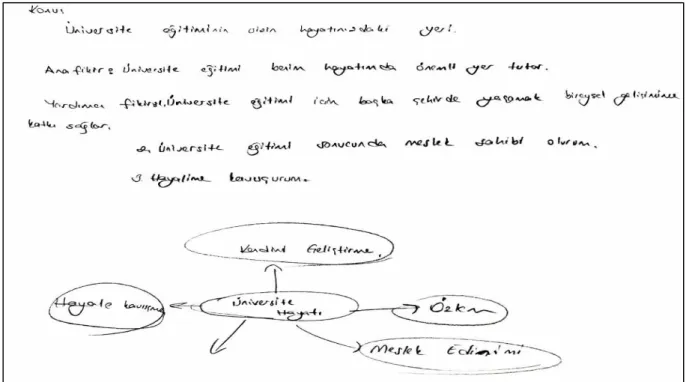 Konu:
Üniversite eğitiminin sizin hayatınızdaki yeri.
Ana fikir: Üniversite eğitimi benim hayatımda önemli yer tutar.
Yardımcı fikir: 1. Üniversite eğitimi için başka şehirde yaşamak bireysel gelişimime
katkı sağlar.
2. Üniversite eğitimi sonucunda meslek sahibi olurum.
3 Hayalime kavuşurum.
Kendini Geliştirme
Hayale kavuşma
Üniversite
Hayatı
Meslek Edinimi